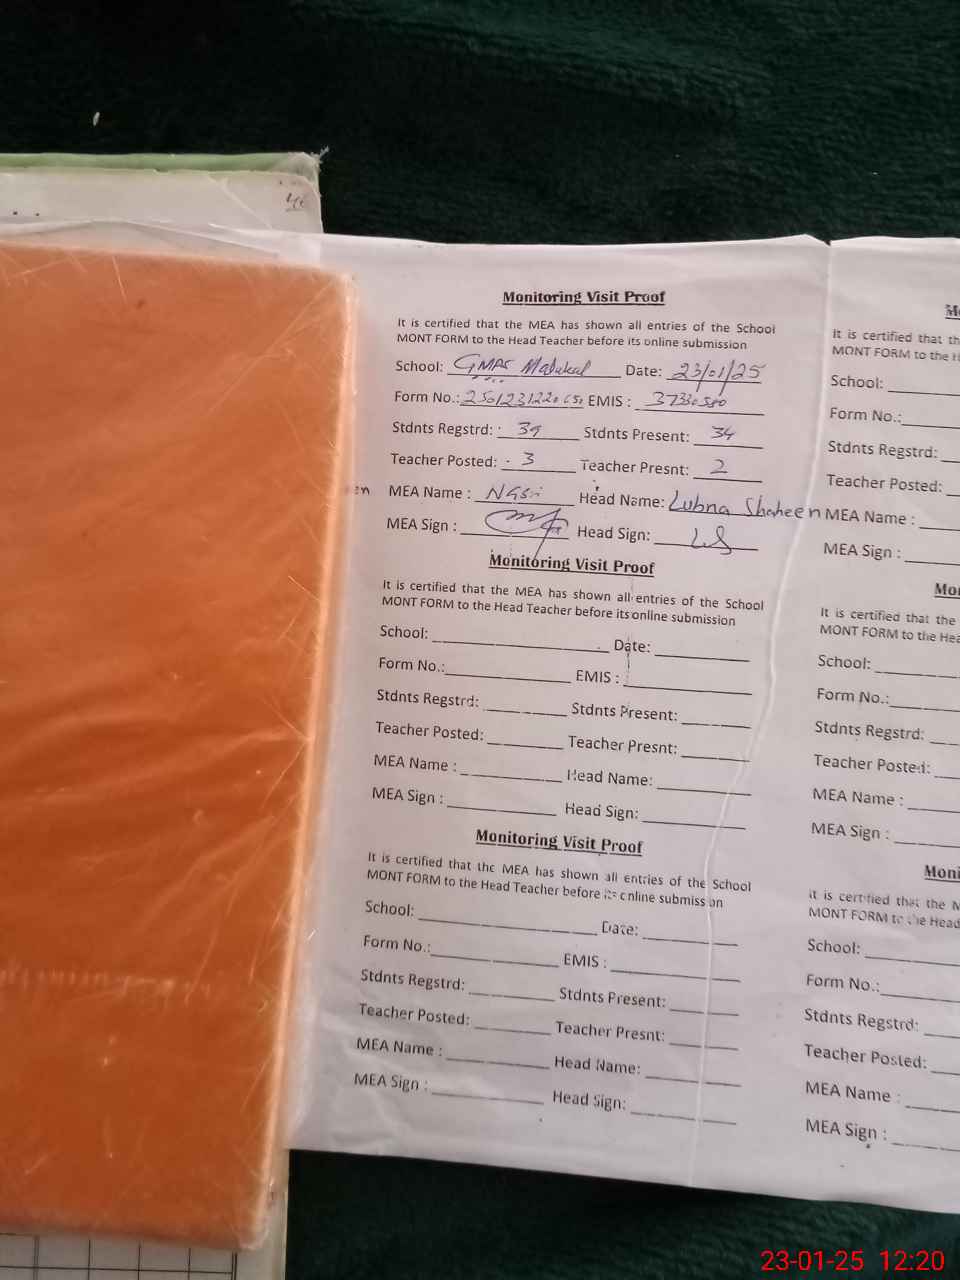 Monitoring Visit Proof
It is certified that the MEA has shown all entries of the School
MONT FORM to the Head Teacher before its online submission
School: GMPS Date: 23/01/25
Form No.: EMIS : 37330580
Stdnts Regstrd: 39 Stdnts Present: 34
Teacher Posted: 3 Teacher Presnt: 2
MEA Name : Head Name: Lubna Shaheen
MEA Sign : Head Sign: LS
Monitoring Visit Proof
It is certified that the MEA has shown all entries of the School
MONT FORM to the Head Teacher before its online submission
School: Date:
Form No.: EMIS :
Stdnts Regstrd: Stdnts Present:
Teacher Posted: Teacher Presnt:
MEA Name : Head Name:
MEA Sign : Head Sign:
Monitoring Visit Proof
It is certified that the MEA has shown all entries of the School
MONT FORM to the Head Teacher before its online submission
School: Date:
Form No.: EMIS :
Stdnts Regstrd: Stdnts Present:
Teacher Posted: Teacher Presnt:
MEA Name : Head Name:
MEA Sign : Head Sign:
It is certified that
MONT FORM to the
School:
Form No.:
Stdnts Regstrd:
Teacher Posted:
MEA Name :
MEA Sign :
It is certified that the
MONT FORM to the
School:
Form No.:
Stdnts Regstrd:
Teacher Posted:
MEA Name :
MEA Sign :
It is certified that the
MONT FORM to the Head
School:
Form No.:
Stdnts Regstrd:
Teacher Posted:
MEA Name :
MEA Sign :
23-01-25 12:20